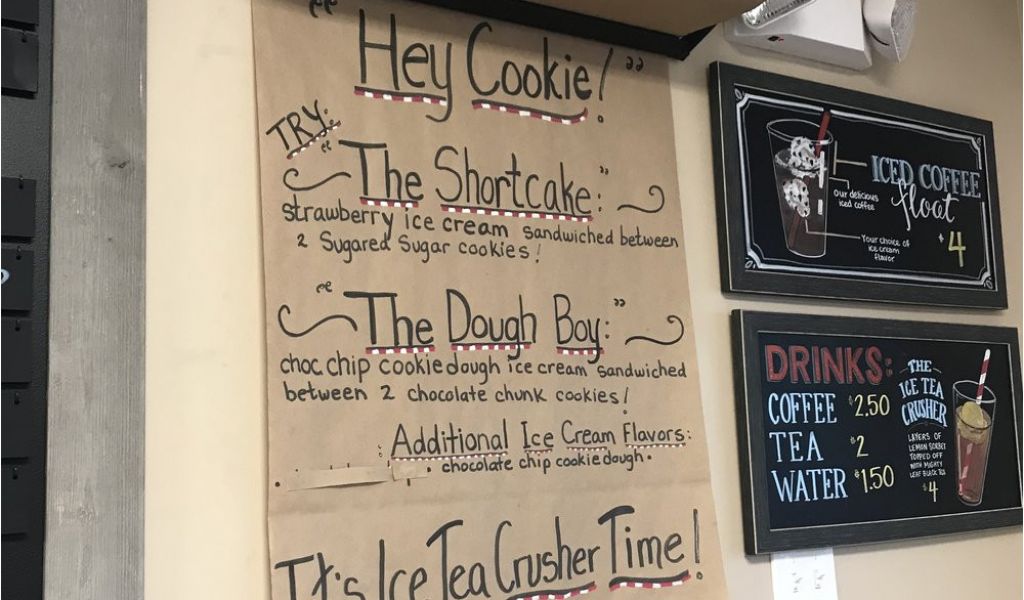 "Hey Cookie!"
TRY:
"The Shortcake:"
strawberry ice cream sandwiched between
2 Sugared Sugar cookies!
"The Dough Boy:"
choc chip cookie dough ice cream sandwiched
between 2 chocolate chunk cookies!
Additional Ice Cream Flavors:
· chocolate chip cookie dough ·
It's Ice Tea Crusher Time!
ICED COFFEE
float
Our delicious
iced coffee
Your choice of
ice cream
flavor
$4
DRINKS:
COFFEE $2.50
TEA $2
WATER $1.50
THE
ICE TEA
CRUSHER
LAYERS OF
LEMON SORBET
TOPPED OFF
WITH MIGHTY
LEAF BLACK TEA
$4